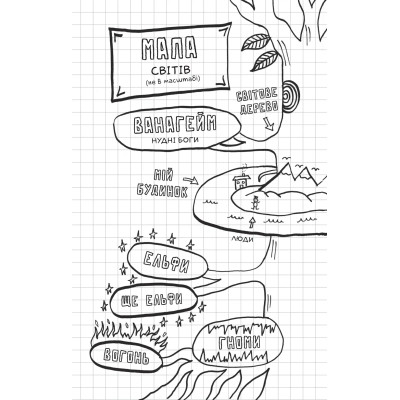 МАПА
СВІТІВ
(не в масштабі)
СВІТОВЕ
ДЕРЕВО
ВАНАГЕЙМ
НУДНІ БОГИ
МІЙ
БУДИНОК
ЛЮДИ
ЕЛЬФИ
ЩЕ ЕЛЬФИ
ВОГОНЬ
ГНОМИ